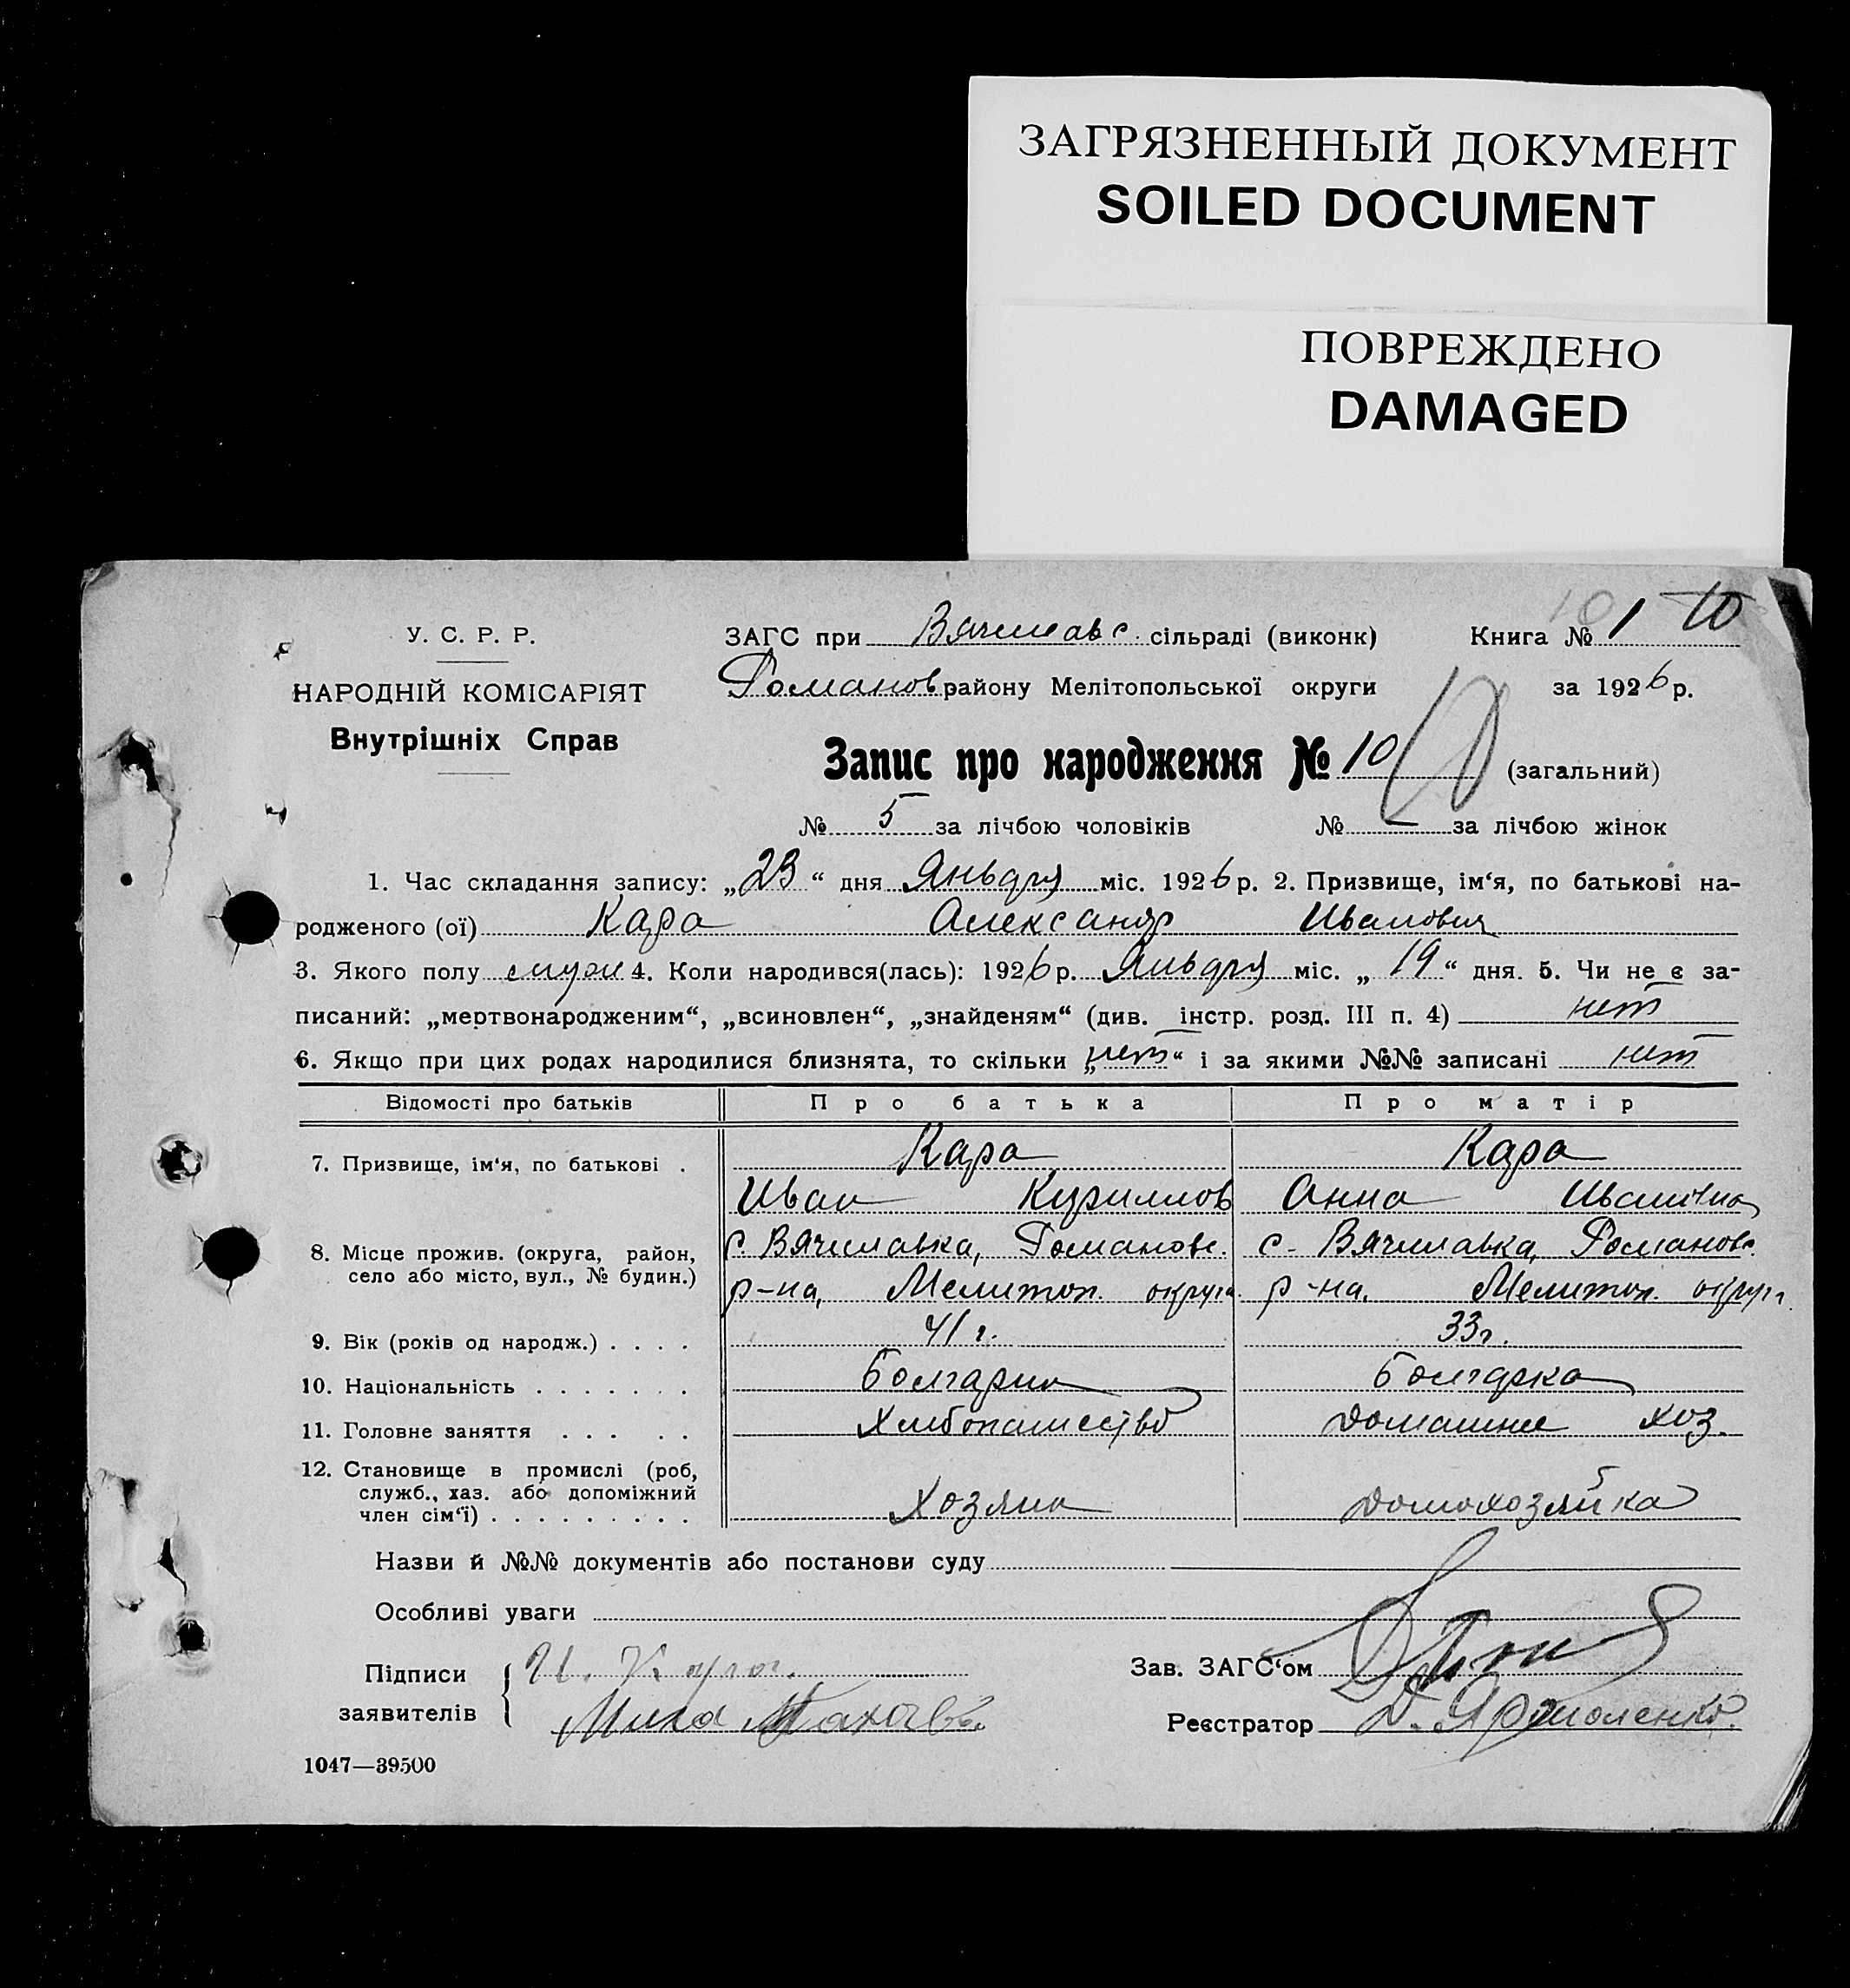 ЗАГРЯЗНЕННЫЙ ДОКУМЕНТ
SOILED DOCUMENT
ПОВРЕЖДЕНО
DAMAGED
10 1 10
У. С. Р. Р.
НАРОДНІЙ КОМІСАРІЯТ
Внутрішніх Справ
ЗАГС при Вячеславс. сільраді (виконк) Книга №
Романов району Мелітопольської округи за 1926 р.
Запис про народження № 10 10 (загальний)
№ 5 за лічбою чоловіків № за лічбою жінок
1. Час складання запису: „23“ дня Января міс. 1926 р. 2. Призвище, ім‘я, по батькові на-
родженого (ої) Кара Александр Иванович
3. Якого полу муж 4. Коли народився(лась): 1926 р. Января міс. „19“ дня. 5. Чи не є за-
писаний: „мертвонародженим“, „всиновлен“, „знайденям“ (див. інстр. розд. III п. 4) нет
6. Якщо при цих родах народилися близнята, то скільки „нет“ і за якими №№ записані нет
Відомості про батьків Про батька Про матір
7. Призвище, ім‘я, по батькові . Кара Кара
Иван Кириллов Анна Ивановна
8. Місце прожив. (округа, район, с. Вячеславка, Романовс. с. Вячеславка, Романовс.
село або місто, вул., № будин.) р-на, Мелитоп. округа р-на, Мелитоп. округа
9. Вік (років од народж.) . . . . 41 г. 33 г.
10. Національність . . . . . . . Болгарин Болгарка
11. Головне заняття . . . . . Хлебопашество Домашнее хоз.
12. Становище в промислі (роб,
служб., хаз. або допоміжний
член сім‘ї) . . . . . . . . . Хозяин домохозяйка
Назви й №№ документів або постанови суду
Особливі уваги
Підписи И. Зав. ЗАГС‘ом
заявителів Реєстратор Д. Ярмоленко
1047—39500